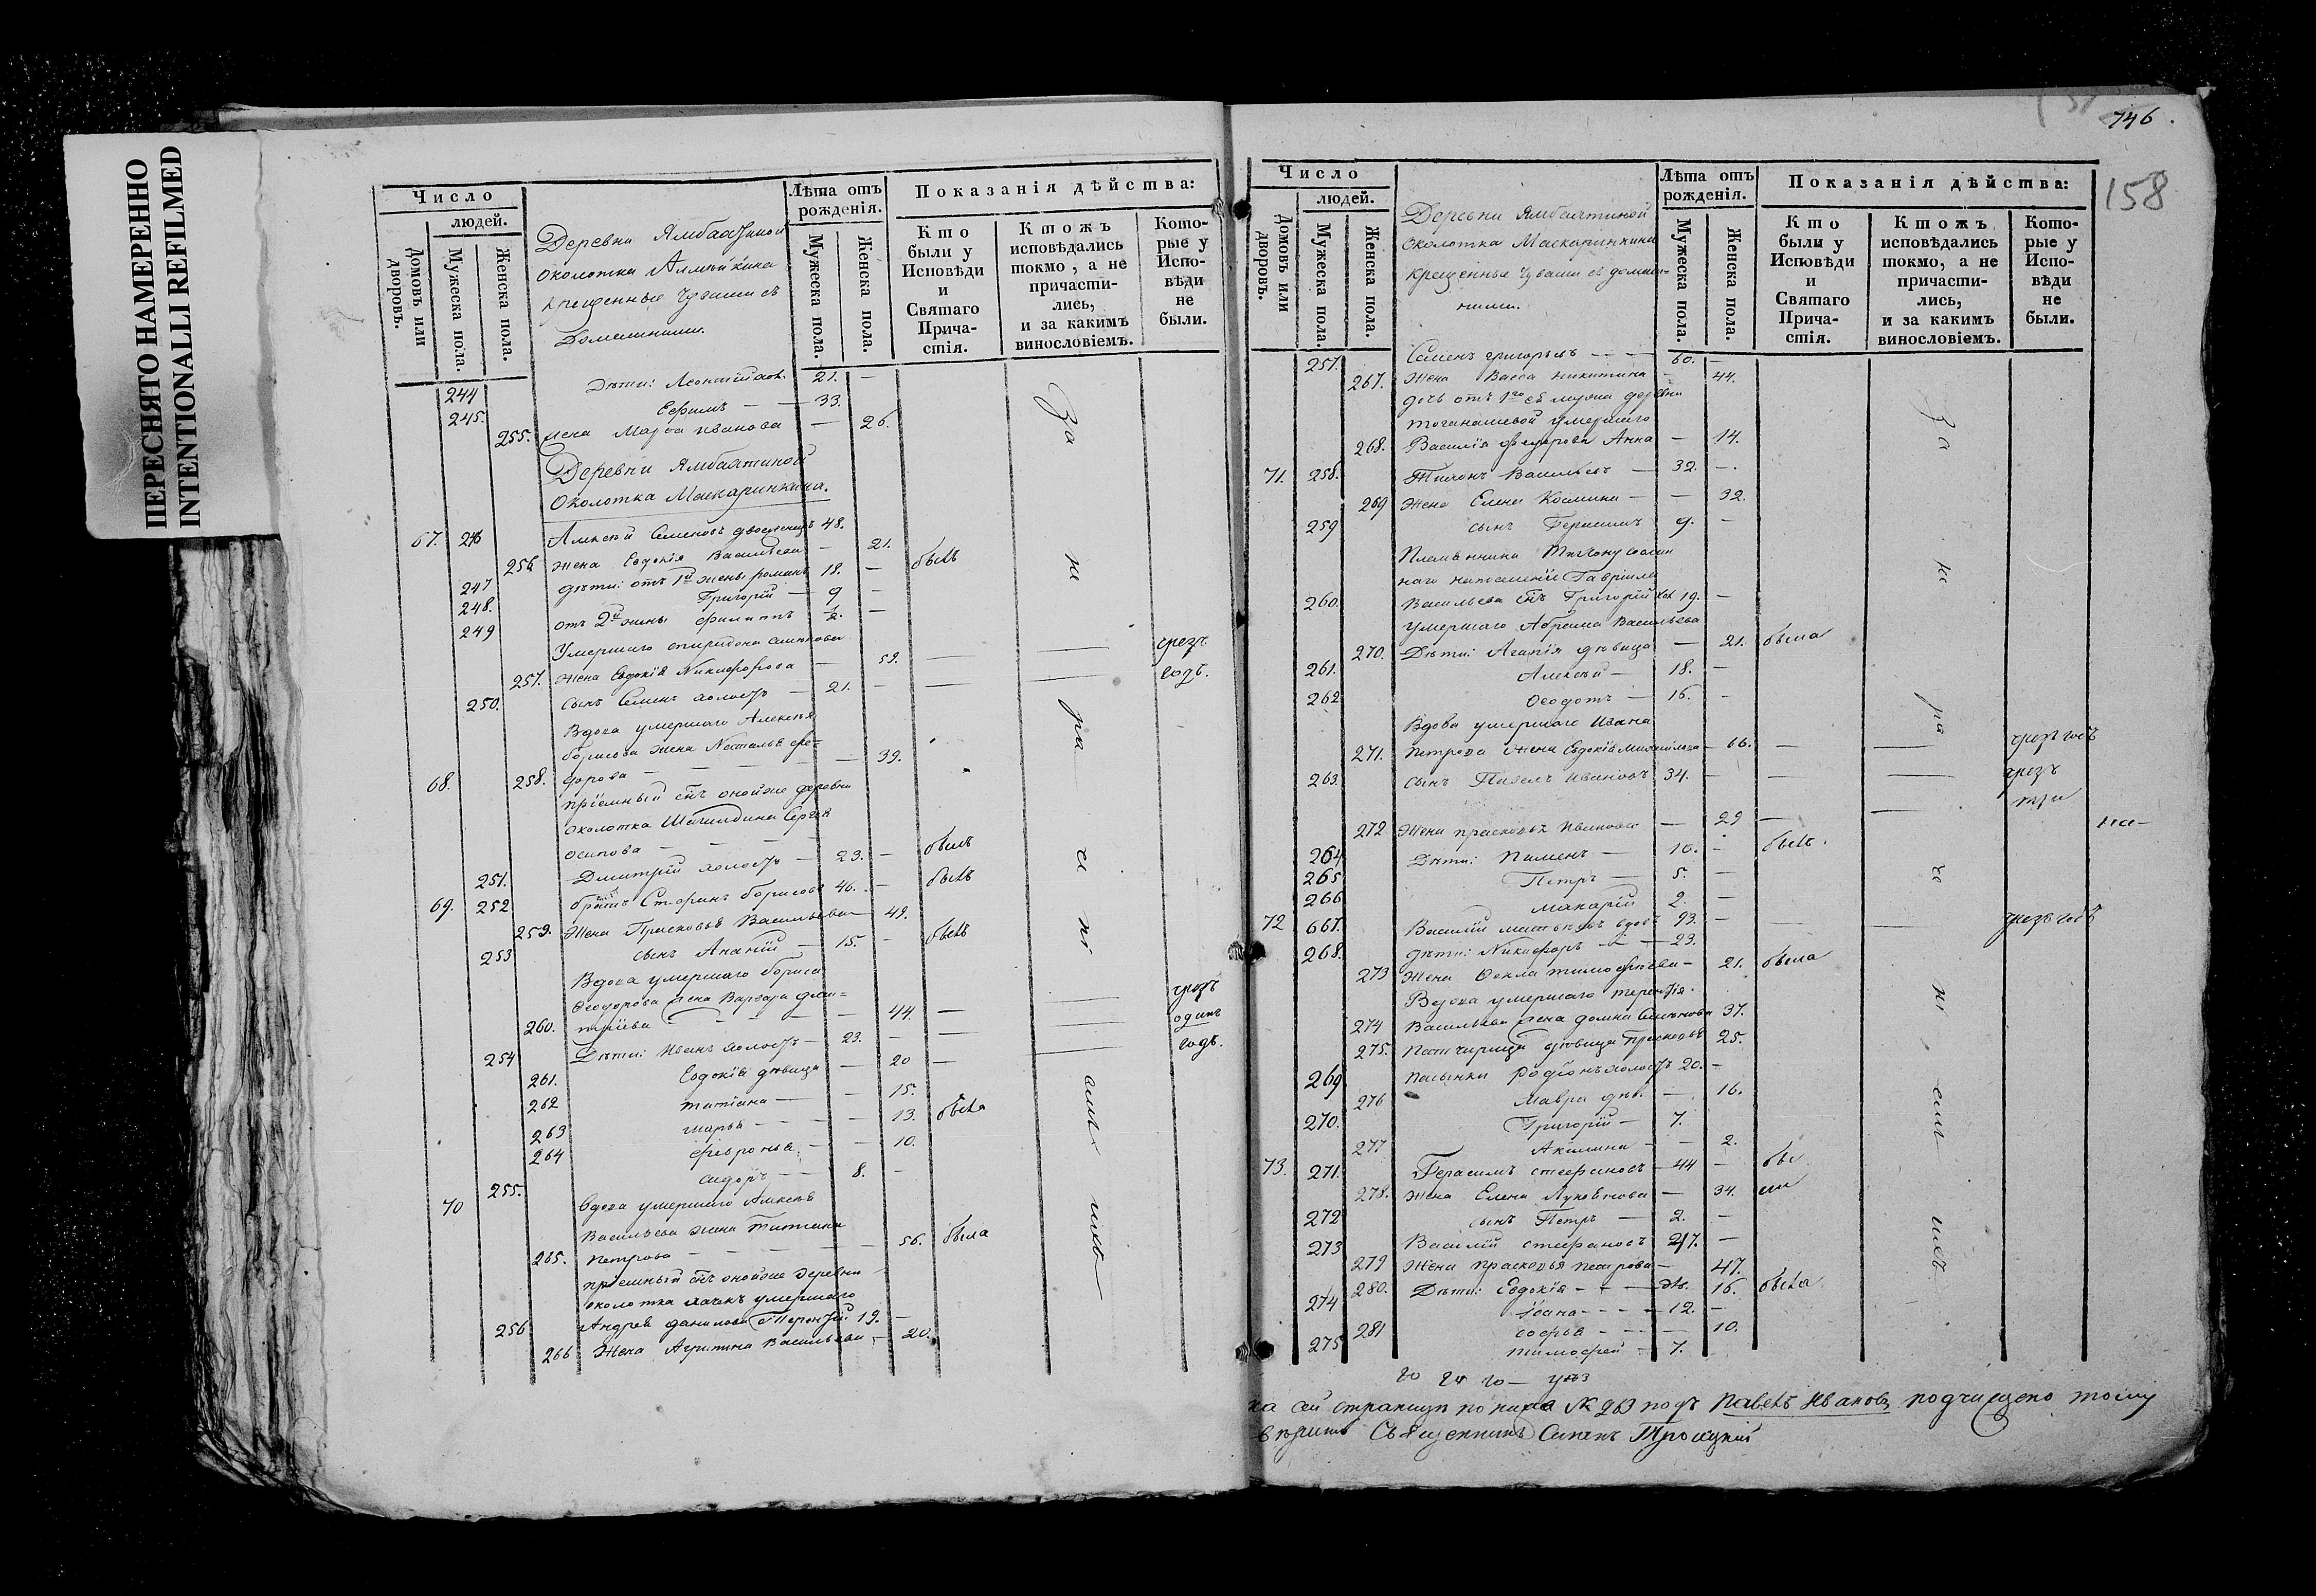 ПЕРЕСНЯТО НАМЕРЕННО
INTENTIONALLI REFILMED
Число
людей.
Домовъ или дворовъ.
Мужеска пола.
Женска пола.
Деревни Ямбахтиной
околотка
крещенные Чуваши съ
домашними.
Лѣта отъ рожденія.
Мужеска пола.
Женска пола.
Показанія дѣйства:
Кто были у Исповѣди и Святаго Прича- стія.
Ктожъ исповѣдались токмо, а не причасти- лись, и за какимъ винословіемъ.
Кото- рые у Испо- вѣди не были.
244 Дѣти: Леонтій 21. —
245. Ефимъ — 33.
255. жена Марѳа Иванова — 26.
Деревни Ямбахтиной
Околотка Маскаринкина.
67. 246 Алексѣй Семеновъ двоеженецъ 48.
256 жена Евдокія Васильева — 21. былъ
247 дѣти: отъ 1й жены романъ 18. —
248. Григорій — 9 —
249 отъ 2й жены филиппъ 1/2. —
Умершаго спиридона семенова
257. жена Евдокія Никифорова — 59. — — чрезъ
250. сынъ Семенъ холостъ — 21. — — — годъ.
Вдова умершаго Алексѣя
борисова жена Наталья фе=
68. 258. дорова — — 39.
пріемный снъ онойже деревни
околотка Сергѣя
осипова —
251. Дмитрій холостъ — 23. — былъ
69. 252 Стефанъ борисовъ 46. — былъ
259. Жена Прасковья Васильева — 49.
253 сынъ Ананій — 15. — былъ
Вдова умершаго бориса
Ѳеодорова жена Варвара дми=
260. тріева — 44. — — чрезъ
254 Дѣти: Иванъ холостъ — 23. — — — одинъ
261. Евдокія дѣвица — 20 — — годъ.
262 татіана — — 15.
263 марья — — 13. была
264 февронья — — 10.
255. сидоръ — 8. —
70 Вдова умершаго Алексѣя
Васильева жена Татіана
265. петрова — — 56. была
пріемный снъ онойже деревни
околотка умершаго
256 Андрея данилова Терентій 19. —
266 Жена Васильева — 20.
За не ра че ні емъ
746.
158
Число
людей.
Домовъ или дворовъ.
Мужеска пола.
Женска пола.
Деревни Ямбахтиной
околотка Маскаринкина
крещенные Чуваши съ домаш-
ними.
Лѣта отъ рожденія.
Мужеска пола.
Женска пола.
Показанія дѣйства:
Кто были у Исповѣди и Святаго Прича- стія.
Ктожъ исповѣдались токмо, а не причасти- лись, и за какимъ винословіемъ.
Кото- рые у Испо- вѣди не были.
257. Семенъ григорьевъ — — 60. —
267. Жена Васса никитина — 44.
дочь отъ 1го ея мужа деревни
умершаго
268. Василія федорова Анна — 14.
71. 258. Тихонъ Васильевъ — 32. —
269 Жена Елена Козмина — — 32.
259 сынъ Герасимъ 9. —
Племянники Тихону
Гавріила
260. Васильева снъ Григорій 19. —
умершаго Абрама Васильева
270. Дѣти: Агапія дѣвица — 21. была
261. Алексѣй — 18. —
262 Ѳеодотъ — 16. —
Вдова умершаго Ивана
271. Петрова жена Евдокія Михайлова — 66. — — чрезъ годъ
263. сынъ Павелъ Ивановъ 34. — — — чрезъ
три
272 Жена прасковья Иванова — 29 — —
264 Дѣти: Пименъ — 10. — былъ.
265 Петръ — 5. —
266 Макарій 2. —
72 667. Василій вдовъ 93. — — — чрезъ годъ
268. дѣти: Никифоръ — 23.
273 Жена Ѳекла тимофѣева — 21. была
Вдова умершаго терентія
274 Васильева жена домна Семенова 37.
275. Патчерица дѣвица Прасковья 25.
269 Пасынки родіонъ холостъ 20. —
276 Мавра дѣв. — 16.
270. Григорій — 7.
277 Акилина — — 2.
73. 271. Герасимъ стефановъ — 44 — бы
278. Жена Елена — 34. ли
272 сынъ Петръ — 2. —
273 Василій стефановъ 47. —
279 Жена прасковья петрова — 47.
280. Дѣти: Евдокія — дѣв. 16. была
274 Іванъ — 12. —
281 софья — — 10.
275 тимофей — 7.
За не ра че ні емъ
на сей страницѣ № 263 подъ Павелъ Ивановъ подчищено тому
вѣрить Священникъ Троицкій